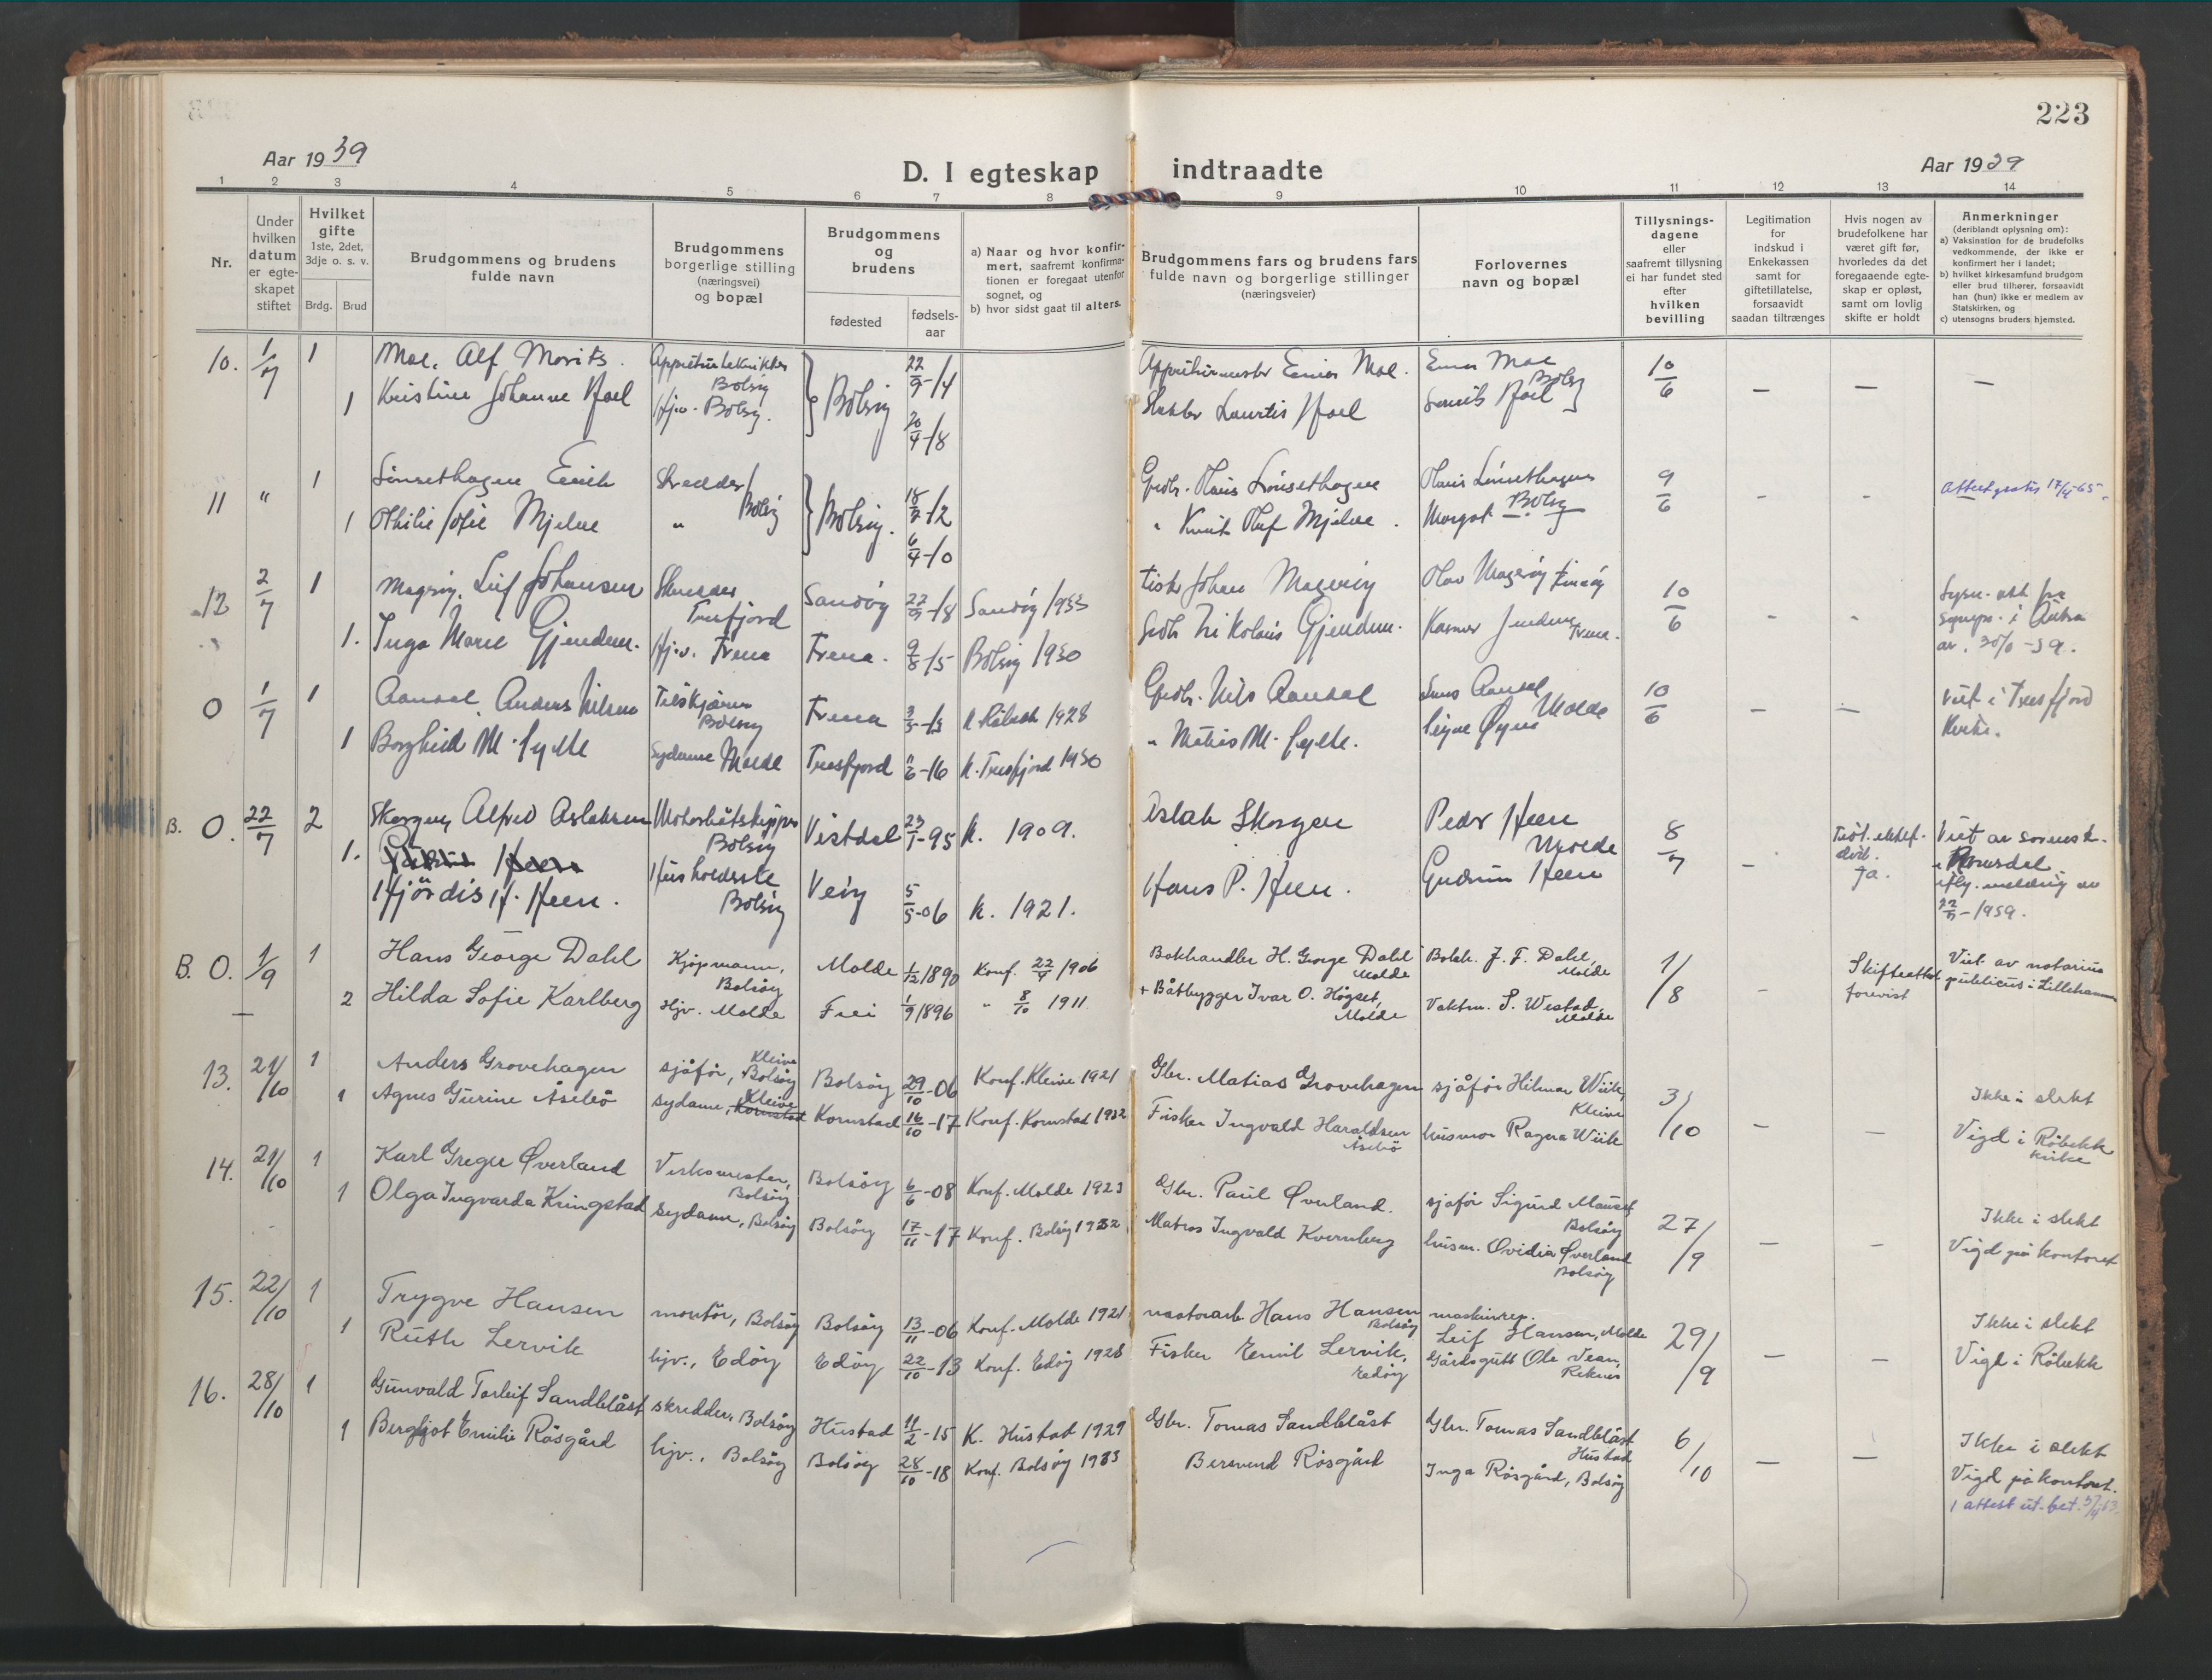 223
Aar 1939
D. I egteskap indtraadte
Aar 1939
1 2 3 4 5 6 7 8 9 10 11 12 13 14
Nr.
Under hvilken datum er egteskapet stiftet
Hvilket gifte 1ste, 2det, 3dje o. s. v.
Brdg. Brud
Brudgommens og brudens fulde navn
Brudgommens borgerlige stilling (næringsvei) og bopæl
Brudgommens og brudens
fødested
fødsels-aar
a) Naar og hvor konfirmert, saafremt konfirmationen er foregaat utenfor sognet, og
b) hvor sidst gaat til alters.
Brudgommens fars og brudens fars fulde navn og borgerlige stillinger (næringsveier)
Forlovernes navn og bopæl
Tillysningsdagene eller saafremt tillysning ei har fundet sted efter hvilken bevilling
Legitimation for indskud i Enkekassen samt for giftetillatelse, forsaavidt saadan tiltrænges
Hvis nogen av brudefolkene har været gift før, hvorledes da det foregaaende egteskap er opløst, samt om lovlig skifte er holdt
Anmerkninger (deriblandt oplysning om):
a) Vaksination for de brudefolks vedkommende, der ikke er konfirmert her i landet;
b) hvilket kirkesamfund brudgom eller brud tilhører, forsaavidt han (hun) ikke er medlem av Statskirken, og
c) utensogns bruders hjemsted.
10. 1/7 1 Moe, Alf Morits. Bolsøy 22/9-14 Einar Moe. Einar Moe Bolsøy 10/6 — — —
1 Kristine Johanne Hoel Hj.v. Bolsøy. Bolsøy 20/4-18 Laurits Hoel
11 " 1 Lønsethagen Skredder Bolsøy 18/7-12 Gbr. Hans Lønsethagen Hans Lønsethagen 9/6 - - Attest gratis
1 Othilie Sofie Mjelve " Bolsøy. 6/4-10 " Knut Olaf Mjelve. Margit Bolsøy
12 2/7 1 Magerøy, Leif Johansen Sandøy 22/9-18 Sandøy 1933 Fisker Johan Magerøy Olav Magerøy 10/6 - -
Tresfjord
1. Inga Marie Gjendem. Hj.v. Fræna Fræna. 9/8-15 Bolsøy 1930 Gbr. Nikolais Gjendem. Fræna.
0 1/7 1 Aandal, Anders Nilsen Bolsøy Fræna Gbr. Nils Aandal Jens Aandal 10/6 — — Viet i Tresfjord
Molde Kirke.
1 Borghild M. Sylte Sydame Molde Tresfjord -16 k. Tresfjord 1930 " M. Sylte.
B. 0. 22/7 2 Skorgen, Alfred Aslaksen Motorbåtskipper Bolsøy Vistdal 23/1-95 k. 1909. Aslak Skorgen Peder Heen Molde 8/7 — Ja.
1. Heen
Hjördis H. Heen. Bolsøy Veøy 5/5-06 k. 1921. Hans P. Heen. Gudrun Heen
Romsdal
B. 0. 1/9 1 Hans George Dahl Kjøpmann, Bolsøy Molde 1/12 1890 Konf. 22/4 1906 Bokhandler H. George Dahl Molde Bokh. J. F. Dahl, Molde 1/8 - Skifteattest forevist Viet av notarius publicus i Lillehammer
2 Hilda Sofie Karlberg Hjv. Molde Frei 1/9 1896 " 8/10 1911 + Båtbygger Ivar O. Högset, Molde Vaktm. S. Westad, Molde
13. 21/10 1 Anders Grovehagen sjåför, Kleive Bolsöy Bolsöy 29/10-06 Konf. Kleive 1921 Gbr. Matias Grovehagen sjåför Hilmar Wiik, Kleive 3/10 — — Ikke i slekt
1 Agnes Gurine Åsebö sydame, Kleive Kornstad Kornstad 16/10-17 Konf. Kornstad 1932 Fisker Ingvald Haraldsen Åsebö husmor Ragna Wiik Vigd i Röbekk kirke
14. 21/10 1 Karl Greger Øverland Verksmester, Bolsöy Bolsöy 6/6-08 Konf. Molde 1923 Gbr. Paul Øverland. sjåför Sigurd Mauset Bolsöy 27/9 — — Ikke i slekt
1 Olga Ingvarda Kringstad sydame, Bolsöy Bolsöy 17/11-17 Konf. Bolsöy 1932 Matros Ingvald Kvernberg husm. Ovidia Øverland Bolsöy Vigd på kontoret
15. 22/10 1 Trygve Hansen montör, Bolsöy Bolsöy 13/11-06 Konf. Molde 1921 Hans Hansen Bolsöy maskinrep. Leif Hansen, Molde 29/9 — — Ikke i slekt
1 Ruth Lervik hjv., Edöy Edöy 22/10-13 Konf. Edöy 1928 Fisker Emil Lervik, Edöy Gårdsgutt Ole Vean, Reknes Vigd i Röbekk
16. 28/10 1 Gunvald Torleif Sandblåst skredder, Bolsöy Hustad 11/2-15 K. Hustad 1929 Gbr. Tomas Sandblåst Gbr. Tomas Sandblåst Hustad 6/10 — — Ikke i slekt
1 Bergljot Emilie Rösgård hjv., Bolsöy Bolsöy 28/10-18 Konf. Bolsöy 1933 Bersvend Rösgård Inga Rösgård, Bolsöy Vigd på kontoret.
1 attest ut.